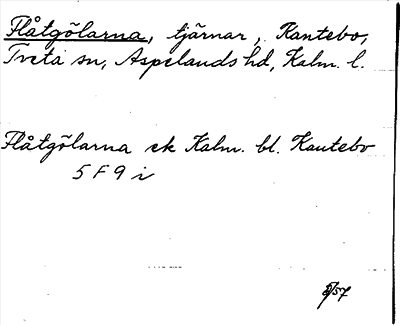 Flåtgölarna, tjärnar, Kantebo,
Tveta sn, Aspelands hd, Kalm. l.
Flåtgölarna ek Kalm. bl. Kantebo
5 F 9 i